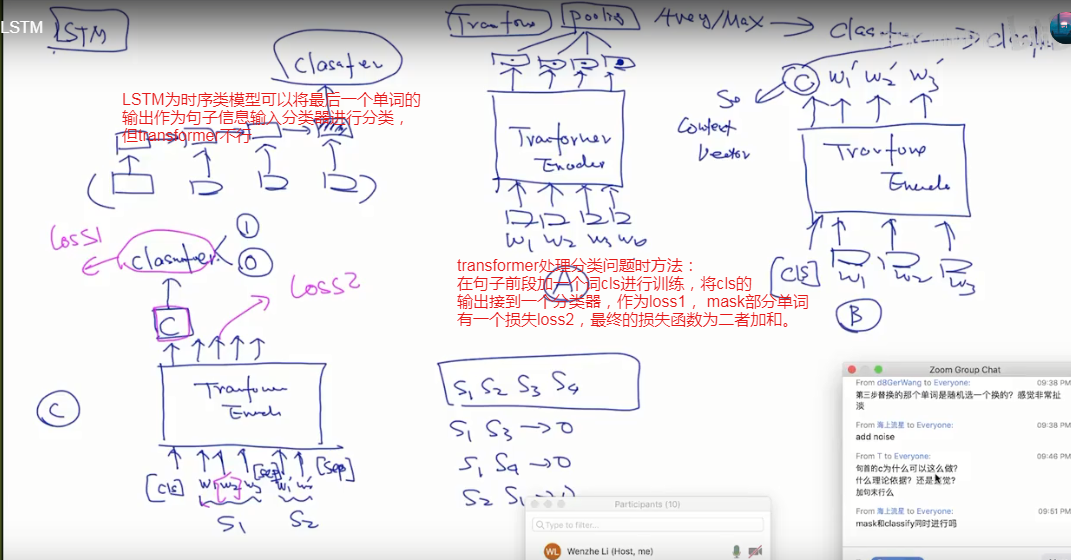 LSTM
LSTM
Classifier
LSTM为时序类模型可以将最后一个单词的
输出作为句子信息输入分类器进行分类，
但transformer不行
pooling
Avey/Max
Tranformer
Encoder
w1 w2 w3
A
transformer处理分类问题时方法：
在句子前段加一个词cls进行训练，将cls的
输出接到一个分类器，作为loss1， mask部分单词
有一个损失loss2，最终的损失函数为二者加和。
C w1' w2' w3'
Context
Vector
[cls] w1 w2 w3
B
Loss1
1
0
Loss2
C
C
[cls] w1 w2 w3 [sep] w1' w2' [sep]
S1 S2
S1 S2 S3 S4
S1 S3 → 0
S1 S4 → 0
S2 S1 →
Zoom Group Chat
From d8GerWang to Everyone: 09:38 PM
第三步替换的那个单词是随机选一个换的？感觉非常扯
淡
From 海上流星 to Everyone: 09:38 PM
add noise
From T to Everyone: 09:46 PM
句首的c为什么可以这么做？
什么理论依据？还是直觉？
加句末行么
From 海上流星 to Everyone: 09:51 PM
mask和classify同时进行吗
Participants (10)
Type to filter...
WL Wenzhe Li (Host, me)